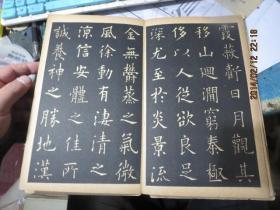 霞蔽虧日月觀其
移山迴澗窮泰極
侈以人從欲良足
深尤至於炎景流
金無鬱蒸之氣微
風徐動有淒清之
涼信安體之佳所
誠養神之勝地漢
2014/02/12 22:18